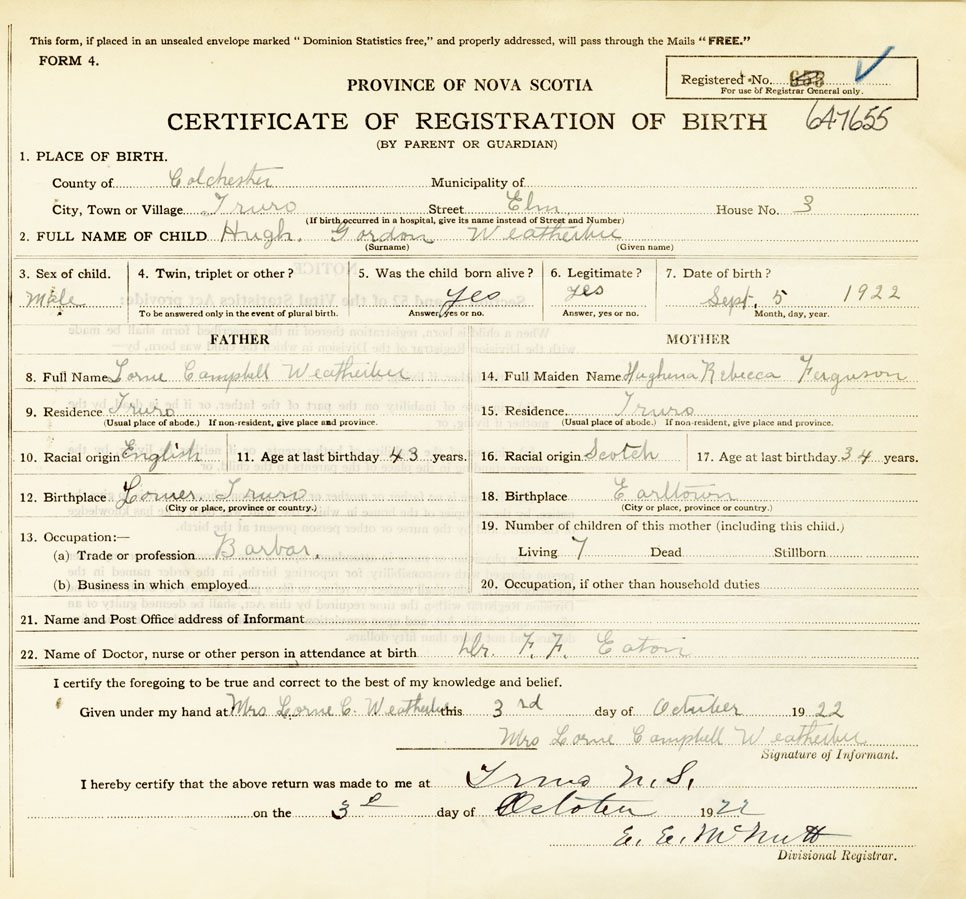 This form, if placed in an unsealed envelope marked "Dominion Statistics free," and properly addressed, will pass through the Mails "FREE."
FORM 4.
Registered No.
For use of Registrar General only.
PROVINCE OF NOVA SCOTIA
CERTIFICATE OF REGISTRATION OF BIRTH 647655
(BY PARENT OR GUARDIAN)
1. PLACE OF BIRTH.
County of Colchester Municipality of
City, Town or Village Truro Street Elm House No. 3
(If birth occurred in a hospital, give its name instead of Street and Number)
2. FULL NAME OF CHILD Hugh. Gordon Weatherbee
(Surname) (Given name)
3. Sex of child. 4. Twin, triplet or other? 5. Was the child born alive? 6. Legitimate? 7. Date of birth?
Male yes yes Sept. 5 1922
To be answered only in the event of plural birth. Answer, yes or no. Answer, yes or no. Month, day, year.
FATHER MOTHER
8. Full Name Lorne Campbell Weatherbee 14. Full Maiden Name Hughena Rebecca Ferguson
9. Residence Truro 15. Residence. Truro
(Usual place of abode.) If non-resident, give place and province. (Usual place of abode.) If non-resident, give place and province.
10. Racial origin English 11. Age at last birthday 43 years. 16. Racial origin Scotch 17. Age at last birthday 34 years.
12. Birthplace Lower. Truro 18. Birthplace Earltown
(City or place, province or country.) (City or place, province or country.)
13. Occupation:— 19. Number of children of this mother (including this child.)
(a) Trade or profession Barbar. Living 7 Dead Stillborn
(b) Business in which employed 20. Occupation, if other than household duties
21. Name and Post Office address of Informant
22. Name of Doctor, nurse or other person in attendance at birth Dr. F. F. Eaton
I certify the foregoing to be true and correct to the best of my knowledge and belief.
Given under my hand at Mrs Lorne C. Weatherbee this 3rd day of October 1922
Mrs Lorne Campbell Weatherbee
Signature of Informant.
I hereby certify that the above return was made to me at Truro N.S.
on the 3d day of October 1922
E. E. McNutt
Divisional Registrar.